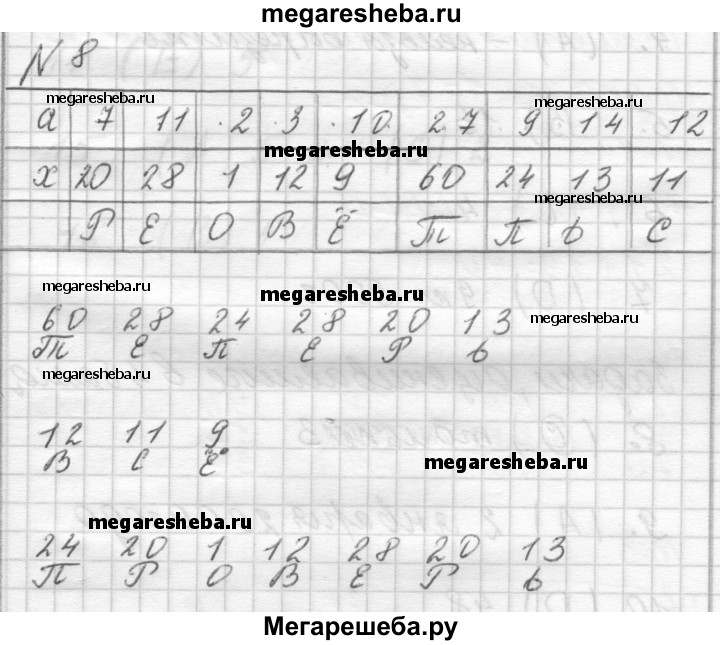 megaresheba.ru
N 8
megaresheba.ru megaresheba.ru
а 7 11 2 3 10 27 9 14 12
megaresheba.ru
х 20 28 1 12 9 60 24 13 11
megaresheba.ru
Р Е О В Ё Т П Ь С
megaresheba.ru megaresheba.ru
60 28 24 28 20 13
megaresheba.ru
Т Е П Е Р Ь
megaresheba.ru
12 11 9
В С Ё
megaresheba.ru
megaresheba.ru
24 20 1 12 28 20 13
П Р О В Е Р Ь
Мегарешеба.ру